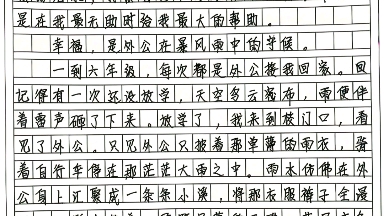 是在我最无助时给我最大的帮助。
幸福,是外公在暴风雨中的守候。
一到六年级,每次都是外公接我回家。
记得有一次还没放学,天空乌云密布,雨便伴
着雷声砸了下来。放学了,我来到校门口,看
见了外公。只见外公只披着那单薄的雨衣,
着自行车停在那茫茫大雨之中。雨水仿佛在外
公身上汇聚成一条条小溪,将那衣服裤子全